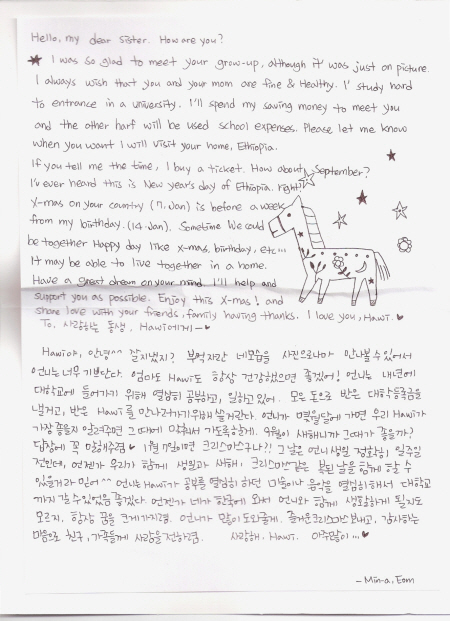 Hello, my dear sister. How are you?
I was so glad to meet your grow-up, although it was just on picture.
I always wish that you and your mom are fine & Healthy. I' study hard
to entrance in a university. I'll spend my saving money to meet you
and the other harf will be used school expenses. Please let me know
when you want I will visit your home, Ethiopia.
If you tell me the time, I buy a ticket. How about September?
I'v ever heard this is New year's day of Ethiopia. right?
X-mas on your country (7. Jan) is before a week
from my birthday. (14. Jan). Sometime We could
be together Happy day like x-mas, birthday, etc...
It may be able to live together in a home.
Have a great dream on your mind. I'll help and
support you as possible. Enjoy this X-mas! and
share love with your friends, family having thanks. I love you, Hawi.
To. 사랑하는 동생, Hawi에게-
Hawi야, 안녕^^ 잘지냈지? 부쩍자란 네모습을 사진으로나마 만나볼수있어서
언니는 너무 기쁘단다. 엄마도 Hawi도 항상 건강했으면 좋겠어! 언니는 내년에
대학교에 들어가기 위해 열심히 공부하고, 일하고있어. 모은 돈으로 반은 대학등록금을
낼거고, 반은 Hawi를 만나러가기위해쓸거란다. 언니가 몇월달에 가면 우리 Hawi가
가장 좋을지 알려주면 그때에 맞춰서 가도록할게. 9월이 새해니까 그때가 좋을까?
답장에 꼭 말해주렴 1월7일이면 크리스마스구나?! 그날은 언니생일 정확히 일주일
전인데, 언젠가 우리가 함께 생일과 새해, 크리스마스같은 복된 날을 함께 할 수
있을거라 믿어^^ 언니는 Hawi가 공부를 열심히 하던 미술이나 음악을 열심히해서 대학교
까지 갈수있었음 좋겠다. 언젠가 네가 한국에 와서 언니와 함께 생활하게 될지도
모르지. 항상 꿈을 크게가지렴. 언니가 많이도와줄게. 즐거운크리스마스보내고, 감사하는
마음으로 친구, 가족들에게 사랑을전하렴. 사랑해, Hawi. 아주많이...
- Min-a, Eom